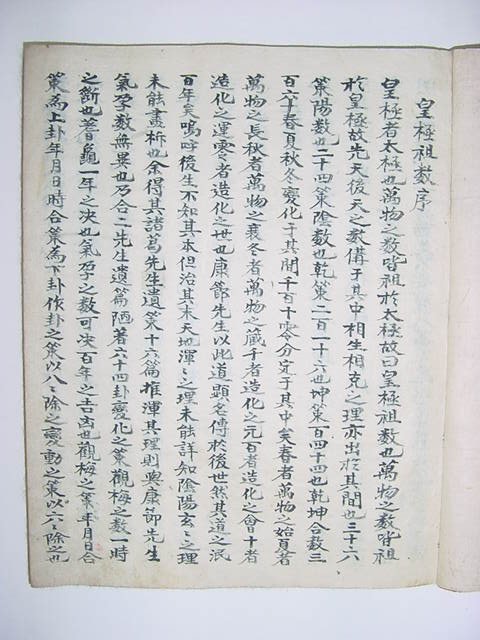 皇極祖数序
皇極者太極也萬物之数皆祖於太極故曰皇極祖数也萬物之数皆祖
於皇極故先天後天之数備于其中相生相克之理亦出於其間也三十六
策陽数也二十四策陰数也乾策二百一十六也坤策百四十四也乾坤合数三
百六十春夏秋冬變化于其間千百十零分定于其中矣春者萬物之始夏者
萬物之長秋者萬物之衰冬者萬物之藏千者造化之元百者造化之會十者
造化之運零者造化之世也康節先生以此道顕名傳於後世然其道之泯
百年矣嗚呼後生不知其本但治其末天地渾〻之理未能詳知陰陽玄〻之理
未能盡析也余得其諸葛先生遺策十六篇推渾其理則與康節先生
氣孕数無異也乃合二先生遺篇陋著六十四卦變化之策觀梅之数一時
之斷也蓍龜一年之决也氣孕之数可决百年之吉凶也觀梅之策年月日合
策為上卦年月日時合策為下卦作卦之策以八〻除之變動之策以六〻除之也